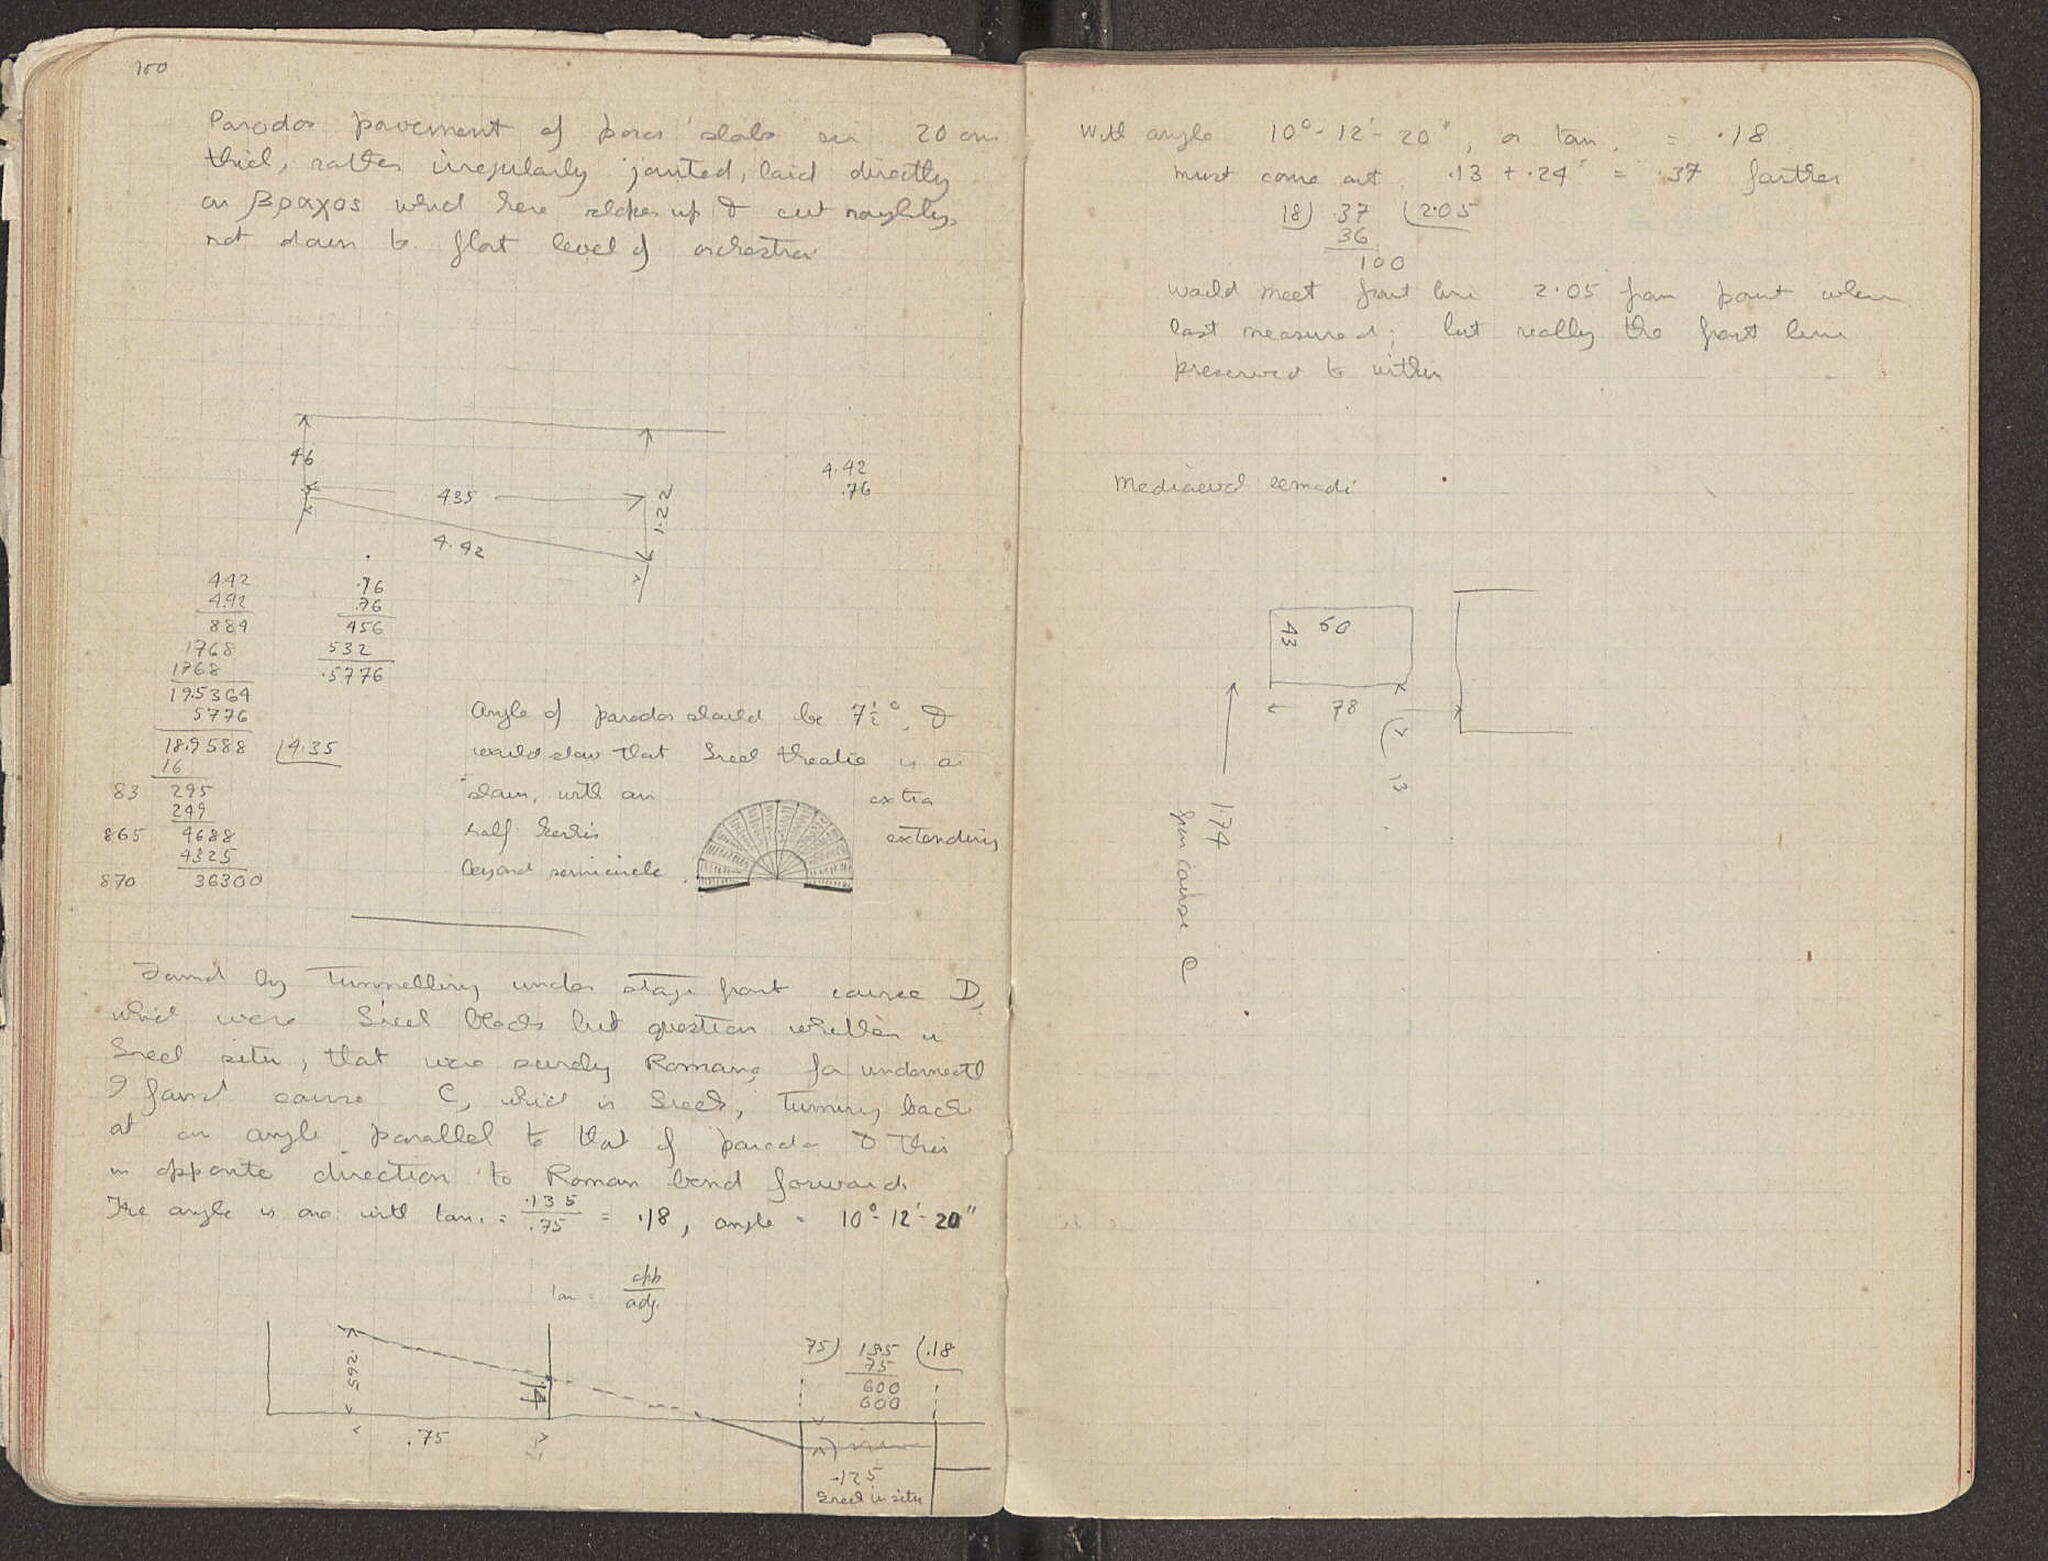 100
Parodos pavement of poros slabs on 20 cm
thick, rather irregularly jointed, laid directly
on βραχος which here slopes up & cut roughly,
not down to float level of orchestra
46
435
1.22
4.42
4.42
.76
4.42
4.42
884
1768
1768
19.5364
5776
18.9588 (4.35
16
83 295
249
865 4688
4325
870 36300
.76
.76
456
532
.5776
Angle of parodos should be 7½°, &
would show that Greek theatre is as
shown, with an extra
half kerkis extending
beyond semicircle.
Found by tunnelling under stage front course D,
which were Greek blocks but question whether in
Greek situ, that were surely Romans, for underneath
I found course C, which is Greek, turning back
at an angle parallel to that of parodos & this
in opposite direction to Roman bend forward.
The angle is one with tan. = .135/.75 = .18, angle = 10°-12'-20"
tan = opp/adj.
.265
.14
.75
75) 135 (.18
75
600
600
.125
Greek in situ
With angle 10°-12'-20", or tan. = .18
must come out .13 + .24 = .37 farther
18) .37 (2.05
36
100
would meet front line 2.05 from point where
last measured; but really the front line
preserved to within
Mediaeval
43 60
78
13
1.74
from course C